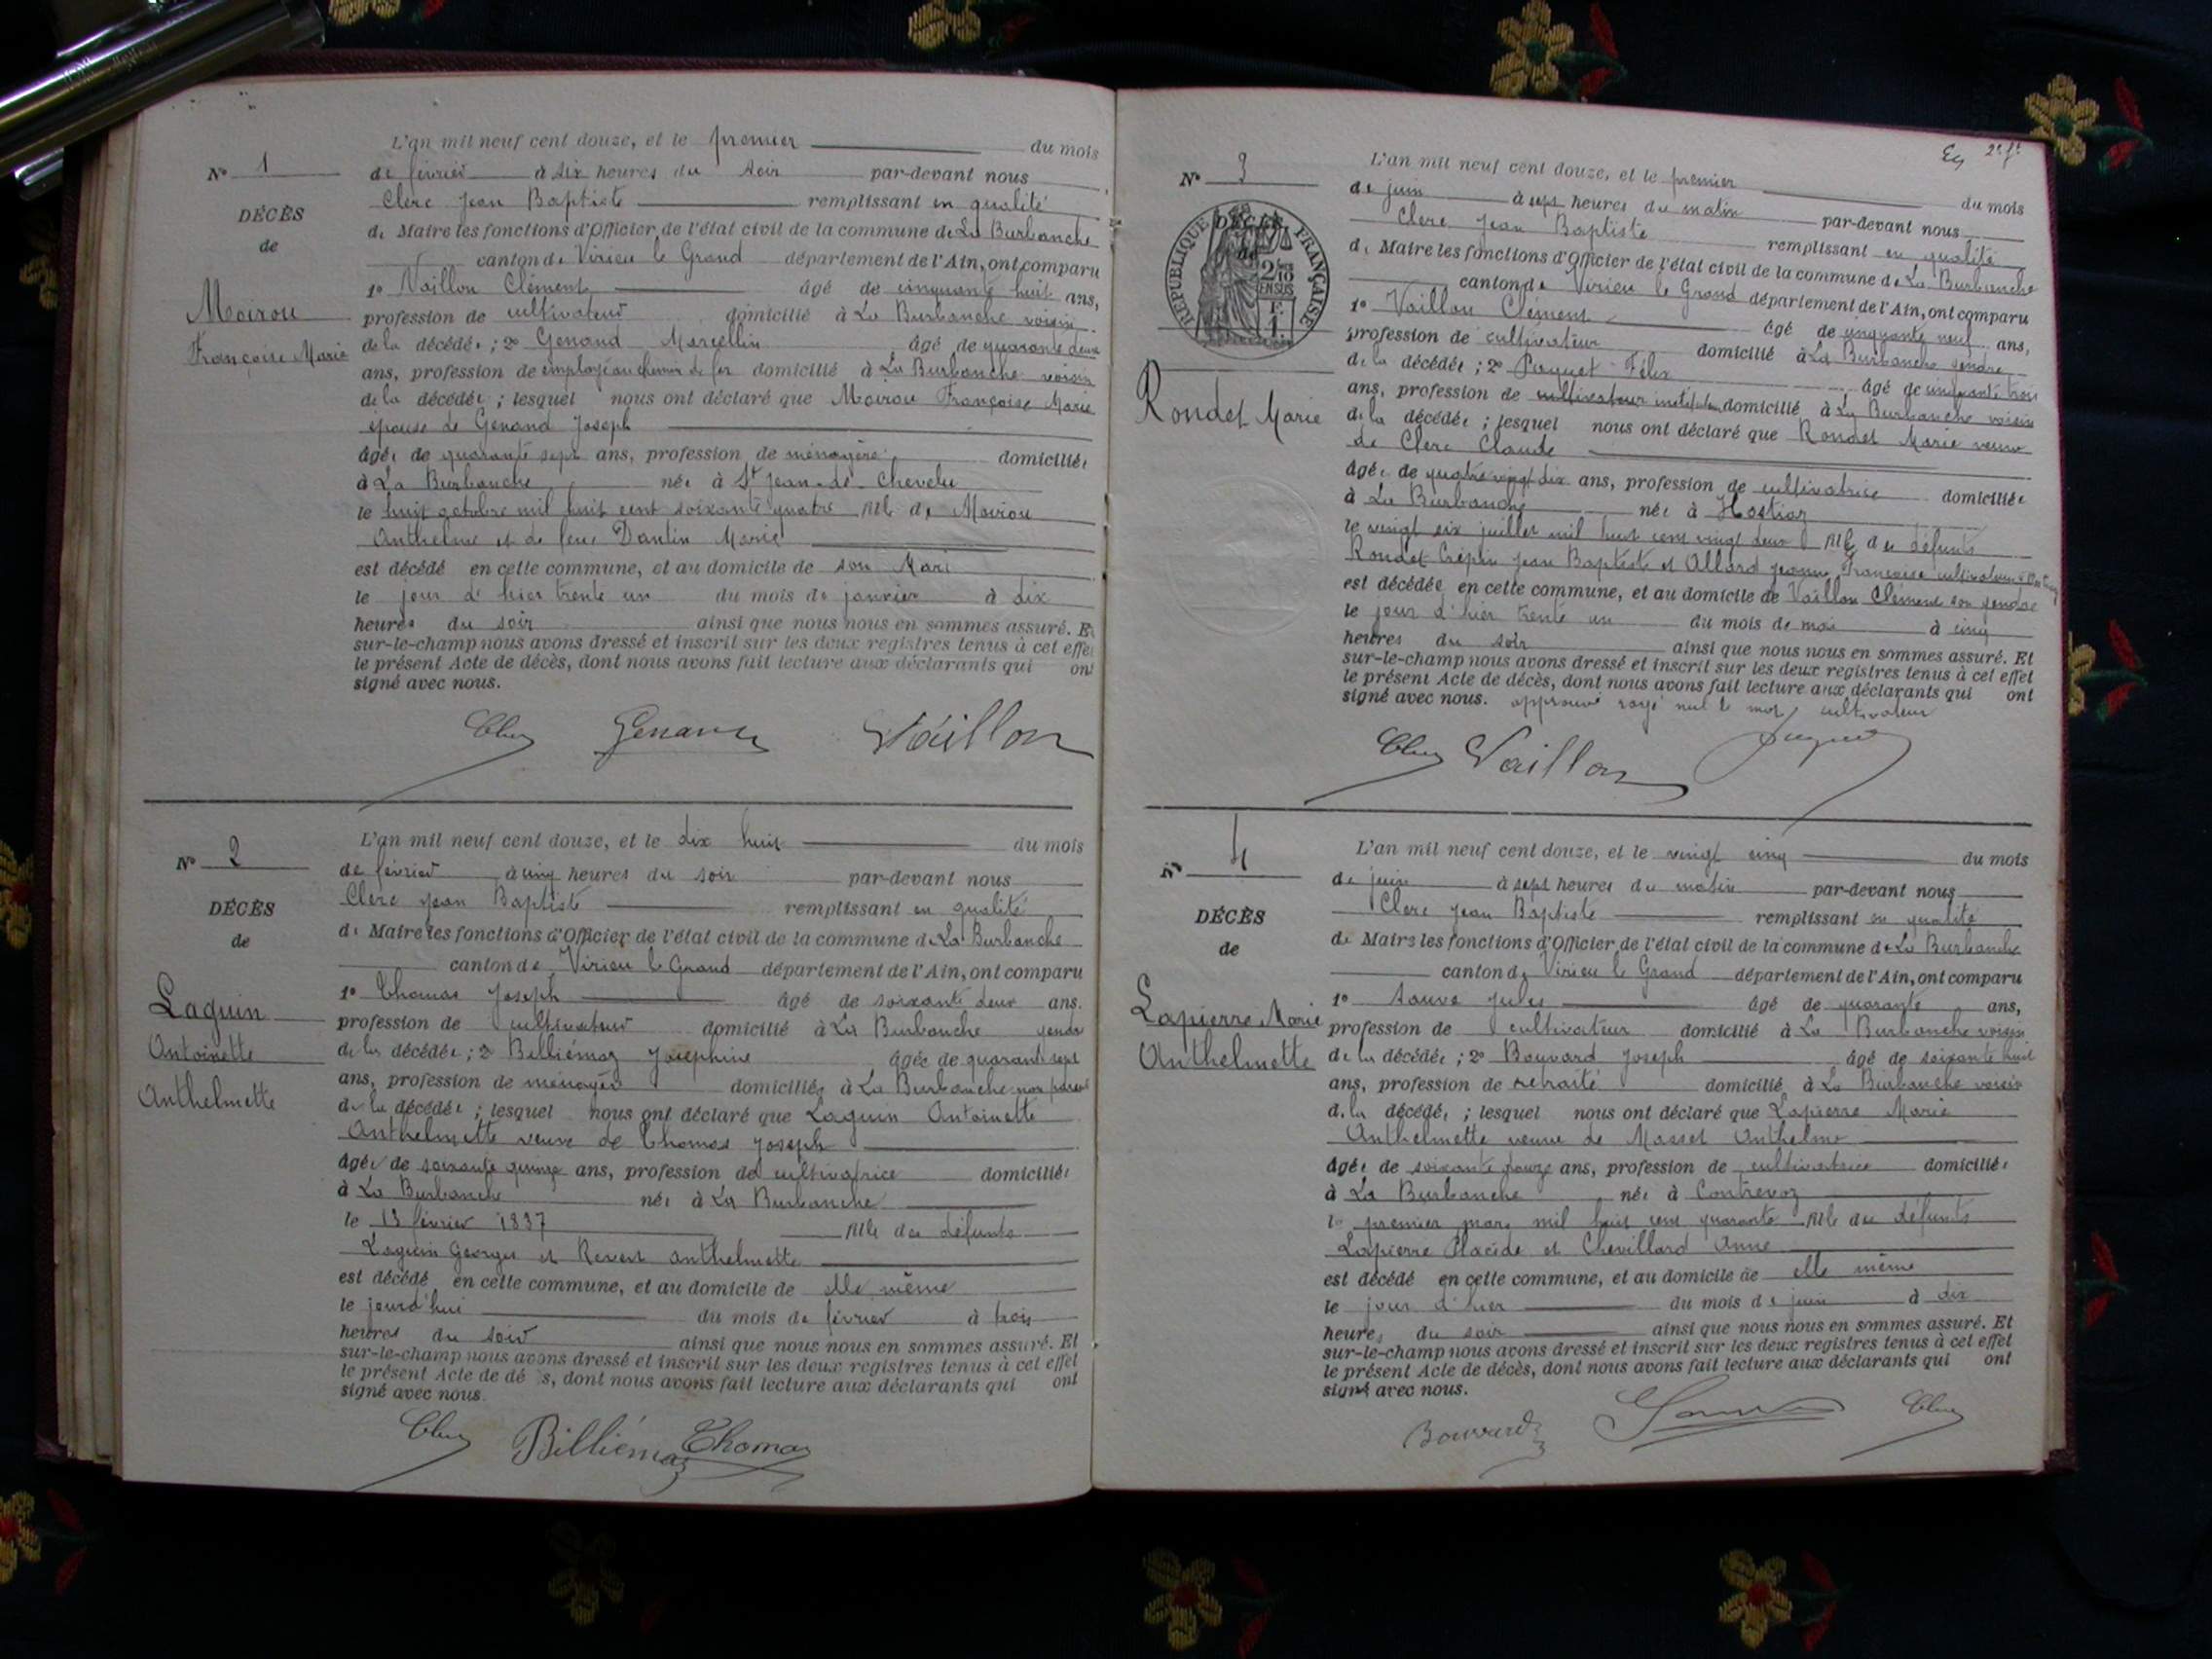 N° 1
DÉCÈS
de
Moirou
Françoise Marie
L'an mil neuf cent douze, et le premier du mois
de février à six heures du soir par-devant nous
Clerc Jean Baptiste remplissant en qualité
de Maire les fonctions d'Officier de l'état civil de la commune de La Burbanche
canton de Virieu le Grand département de l'Ain, ont comparu
1° Vaillon Clément âgé de cinquante huit ans,
profession de cultivateur domicilié à La Burbanche voisin
de la décédée ; 2° Genand Marcellin âgé de quarante deux
ans, profession de employé au chemin de fer domicilié à La Burbanche voisin
de la décédée ; lesquel nous ont déclaré que Moirou Françoise Marie
épouse de Genand Joseph
âgée de quarante sept ans, profession de ménagère domiciliée
à La Burbanche née à St Jean-de-Chevelu
le huit octobre mil huit cent soixante quatre fille de Moirou
Anthelme et de feue Dantin Marie
est décédé en cette commune, et au domicile de son Mari
le jour d'hier trente un du mois de janvier à dix
heures du soir ainsi que nous nous en sommes assuré. Et
sur-le-champ nous avons dressé et inscrit sur les deux registres tenus à cet effet
le présent Acte de décès, dont nous avons fait lecture aux déclarants qui ont
signé avec nous.
Clerc Genand Vaillon
N° 2
DÉCÈS
de
Laguin
Antoinette
Anthelmette
L'an mil neuf cent douze, et le dix huit du mois
de février à cinq heures du soir par-devant nous
Clerc Jean Baptiste remplissant en qualité
de Maire les fonctions d'Officier de l'état civil de la commune de La Burbanche
canton de Virieu le Grand département de l'Ain, ont comparu
1° Thomas Joseph âgé de soixante deux ans.
profession de cultivateur domicilié à La Burbanche gendre
de la décédée ; 2° Billiémaz Joséphine âgée de quarante sept
ans, profession de ménagère domiciliée à La Burbanche non parent
de la décédée ; lesquel nous ont déclaré que Laguin Antoinette
Anthelmette veuve de Thomas Joseph
âgée de soixante quinze ans, profession de cultivatrice domiciliée
à La Burbanche née à La Burbanche
le 13 février 1837 fille des défunts
Laguin Georges et Revert Anthelmette
est décédé en cette commune, et au domicile de elle même
le jourd'hui du mois de février à trois
heures du soir ainsi que nous nous en sommes assuré. Et
sur-le-champ nous avons dressé et inscrit sur les deux registres tenus à cet effet
le présent Acte de dé s, dont nous avons fait lecture aux déclarants qui ont
signé avec nous.
Clerc Billiémaz Thomas
2e ft
N° 3
DÉCÈS
de
RÉPUBLIQUE FRANÇAISE
2/10
EN SUS
F.
1.
Rondet Marie
L'an mil neuf cent douze, et le premier du mois
de juin à sept heures du matin par-devant nous
Clerc Jean Baptiste remplissant en qualité
de Maire les fonctions d'Officier de l'état civil de la commune de La Burbanche
canton de Virieu le Grand département de l'Ain, ont comparu
1° Vaillon Clément âgé de cinquante neuf ans,
profession de cultivateur domicilié à La Burbanche gendre
de la décédée ; 2° Félix âgé de cinquante trois
ans, profession de cultivateur domicilié à La Burbanche voisin
de la décédée ; lesquel nous ont déclaré que Rondet Marie veuve
de Clerc Claude
âgée de quatre vingt dix ans, profession de cultivatrice domiciliée
à La Burbanche née à Hostiaz
le vingt six juillet mil huit cent vingt deux fille des défunts
Rondet Crépin Jean Baptiste et Allard Jeanne Françoise cultivateurs
est décédée en cette commune, et au domicile de Vaillon Clément son gendre
le jour d'hier trente un du mois de mai à cinq
heures du soir ainsi que nous nous en sommes assuré. Et
sur-le-champ nous avons dressé et inscrit sur les deux registres tenus à cet effet
le présent Acte de décès, dont nous avons fait lecture aux déclarants qui ont
signé avec nous. approuvé rayé nul le mot cultivateur
Clerc Vaillon
N° 4
DÉCÈS
de
Lapierre Marie
Anthelmette
L'an mil neuf cent douze, et le vingt cinq du mois
de juin à sept heures du matin par-devant nous
Clerc Jean Baptiste remplissant en qualité
de Maire les fonctions d'Officier de l'état civil de la commune de La Burbanche
canton de Virieu le Grand département de l'Ain, ont comparu
1° Sauva Jules âgé de quarante ans,
profession de cultivateur domicilié à La Burbanche voisin
de la décédée ; 2° Bouvard Joseph âgé de soixante huit
ans, profession de retraité domicilié à La Burbanche voisin
de la décédée ; lesquel nous ont déclaré que Lapierre Marie
Anthelmette veuve de Masset Anthelme
âgée de soixante douze ans, profession de cultivatrice domiciliée
à La Burbanche née à Contrevoz
le premier mars mil huit cent quarante fille des défunts
Lapierre Placide et Chevillard Anne
est décédé en cette commune, et au domicile de elle même
le jour d'hier du mois de juin à dix
heures du soir ainsi que nous nous en sommes assuré. Et
sur-le-champ nous avons dressé et inscrit sur les deux registres tenus à cet effet
le présent Acte de décès, dont nous avons fait lecture aux déclarants qui ont
signé avec nous.
Bouvard Sauva Clerc